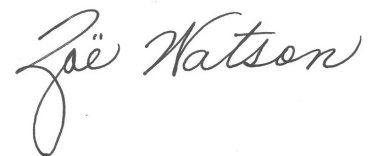 Zoë Watson